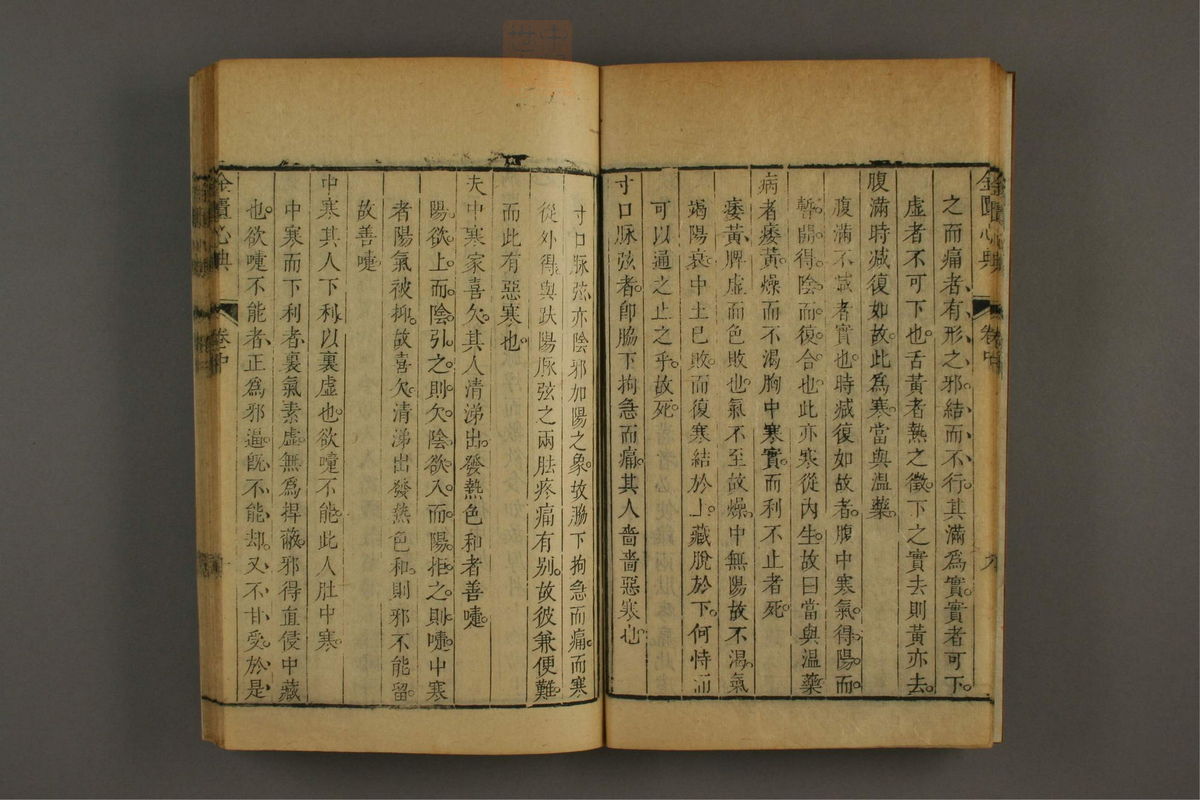 金匱心典 卷中 九
之而痛者有形之邪結而不行其滿爲實實者可下
虛者不可下也舌黃者熱之徵下之實去則黃亦去
腹滿時減復如故此爲寒當與溫藥
腹滿不減者實也時減復如故者腹中寒氣得陽而
暫開得陰而復合也此亦寒從內生故曰當與溫藥
病者痿黃燥而不渴胸中寒實而利不止者死
痿黃脾虛而色敗也氣不至故燥中無陽故不渴氣
竭陽衰中土已敗而復寒結於上藏脫於下何恃而
可以通之止之乎故死
寸口脉弦者卽脇下拘急而痛其人嗇嗇惡寒也
寸口脉弦亦陰邪加陽之象故脇下拘急而痛而寒
從外得與趺陽脉弦之兩胠疼痛有别故彼兼便難
而此有惡寒也
夫中寒家喜欠其人清涕出發熱色和者善嚏
陽欲上而陰引之則欠陰欲入而陽拒之則嚏中寒
者陽氣被抑故喜欠清涕出發熱色和則邪不能留
故善嚏
中寒其人下利以裏虛也欲嚏不能此人肚中寒
中寒而下利者裏氣素虛無爲捍蔽邪得直侵中藏
也欲嚏不能者正爲邪逼旣不能却又不甘受於是
金匱心典 卷中